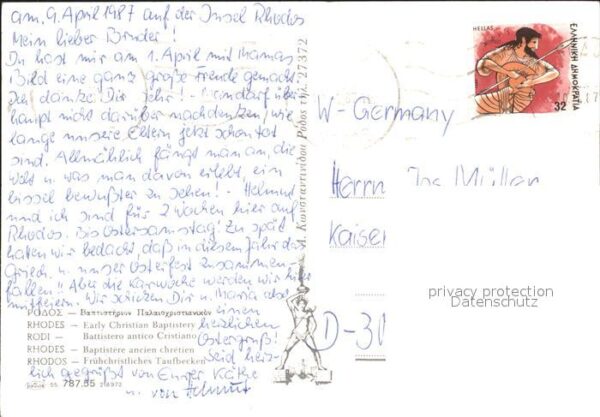 am, 9. April 1987 auf der Insel Rhodos
Mein lieber Bruder!
Du hast mir am 1. April mit Mamas
Bild eine ganz große Freude gemacht
Ich danke Dir sehr! - Man darf über
haupt nicht darüber nachdenken, wie
lange unsere Eltern jetzt schon tot
sind. Allmählich fängt man an, die
Welt u. was man davon erlebt, ein
bissel bewußter zu sehen! - Helmut
und ich sind für 2 Wochen hier auf
Rhodos. Bis Ostersamstag! Zu spät
haben wir bedacht, daß in diesem Jahr das
Griech. u. unser Osterfest zusammen-
fallen! Aber die Karwoche werden wir hier
mitfeiern. Wir schicken Dir u. Maria also
einen
herzlichen
Ostergruß!
Seid herz-
lich gegrüßt von Eurer Käthe
u. von Helmut
ΡΟΔΟΣ — Βαπτιστήριον Παλαιοχριστιανικόν
RHODES — Early Christian Baptistery
RODI — Battistero antico Cristiano
RHODES — Baptistère ancien chrétien
RHODOS — Frühchristliches Taufbecken
55 787.55
Κωνσταντινίδου Ρόδος τηλ. 27372
HELLAS
ΕΛΛΗΝΙΚΗ ΔΗΜΟΚΡΑΤΙΑ
32
W-Germany
Herrn Jos Müller
Kaiser
D-30
privacy protection
Datenschutz